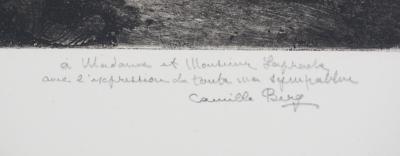 à Madame et Monsieur
avec l'expression de toute ma sympathie
Camille Berg